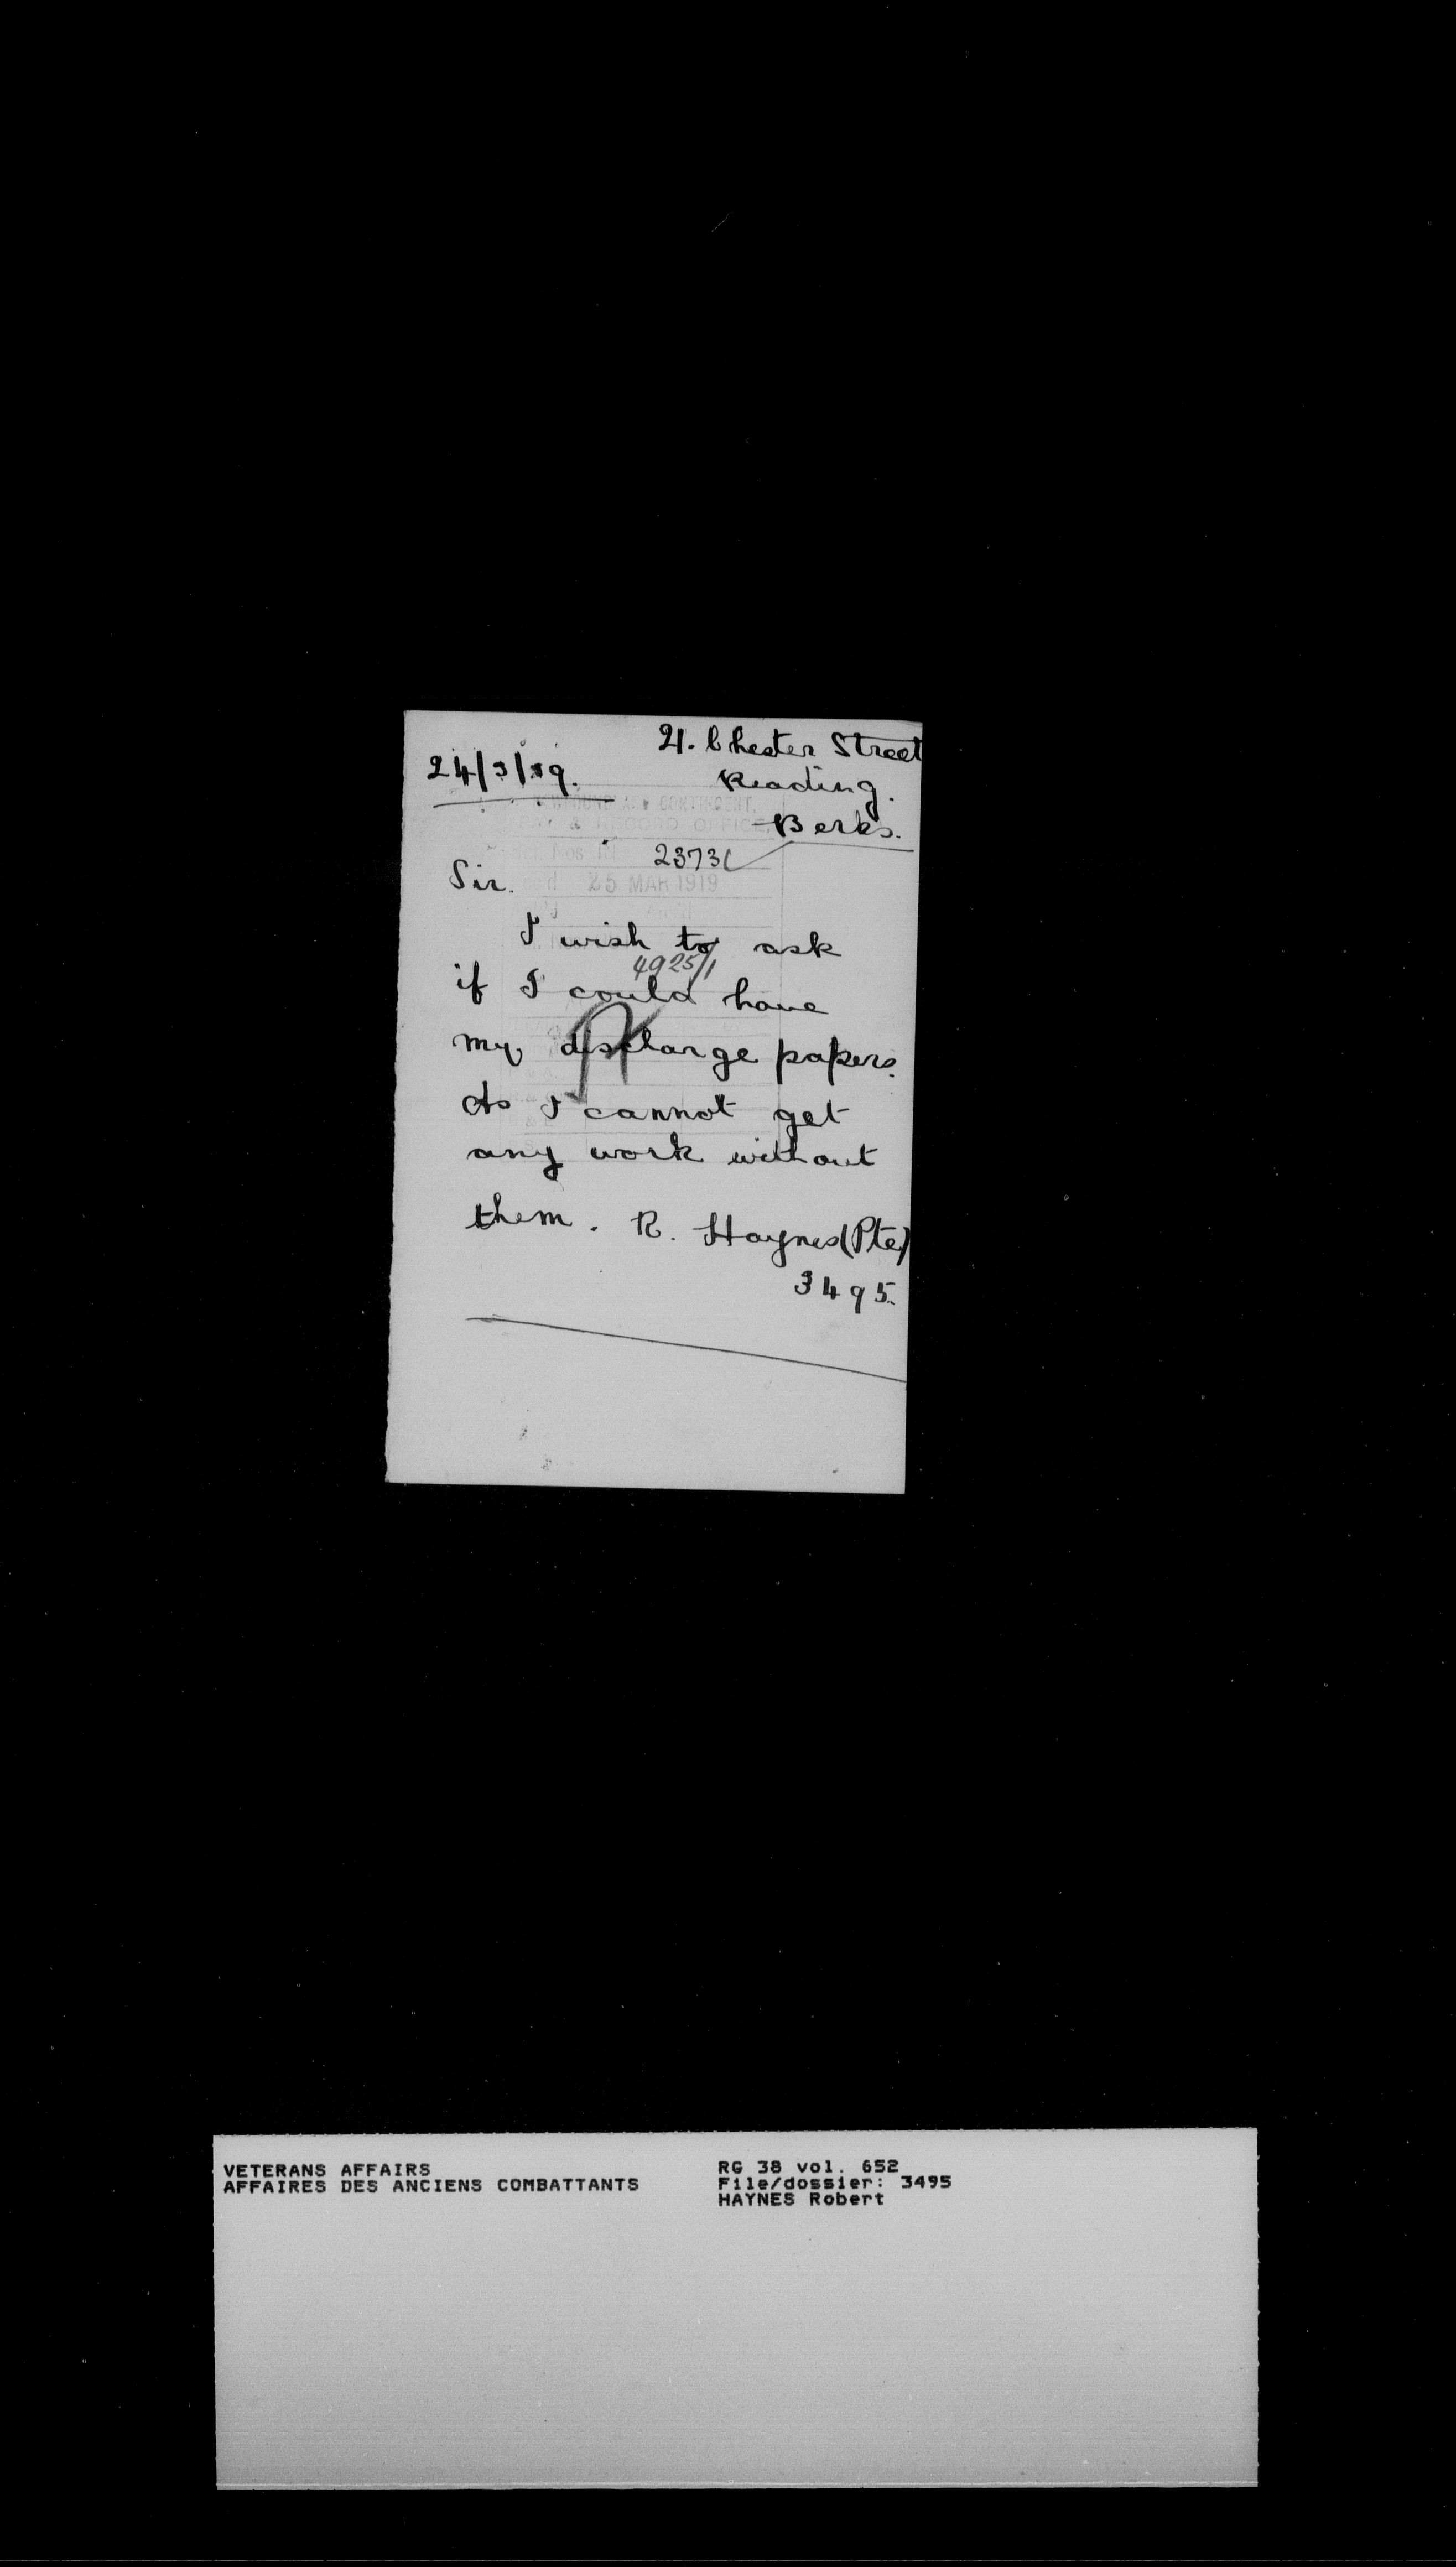 21. Chester Street
24/3/19.
Reading.
Berks.
NEWFOUNDLAND CONTINGENT,
PAY & RECORD OFFICE,
23731
Sir.
25 MAR 1919
I wish to ask
4925/1
if I could have
my discharge papers.
As I cannot get
any work without
them. R. Haynes (Pte)
3495.
VETERANS AFFAIRS
AFFAIRES DES ANCIENS COMBATTANTS
RG 38 vol. 652
File/dossier: 3495
HAYNES Robert